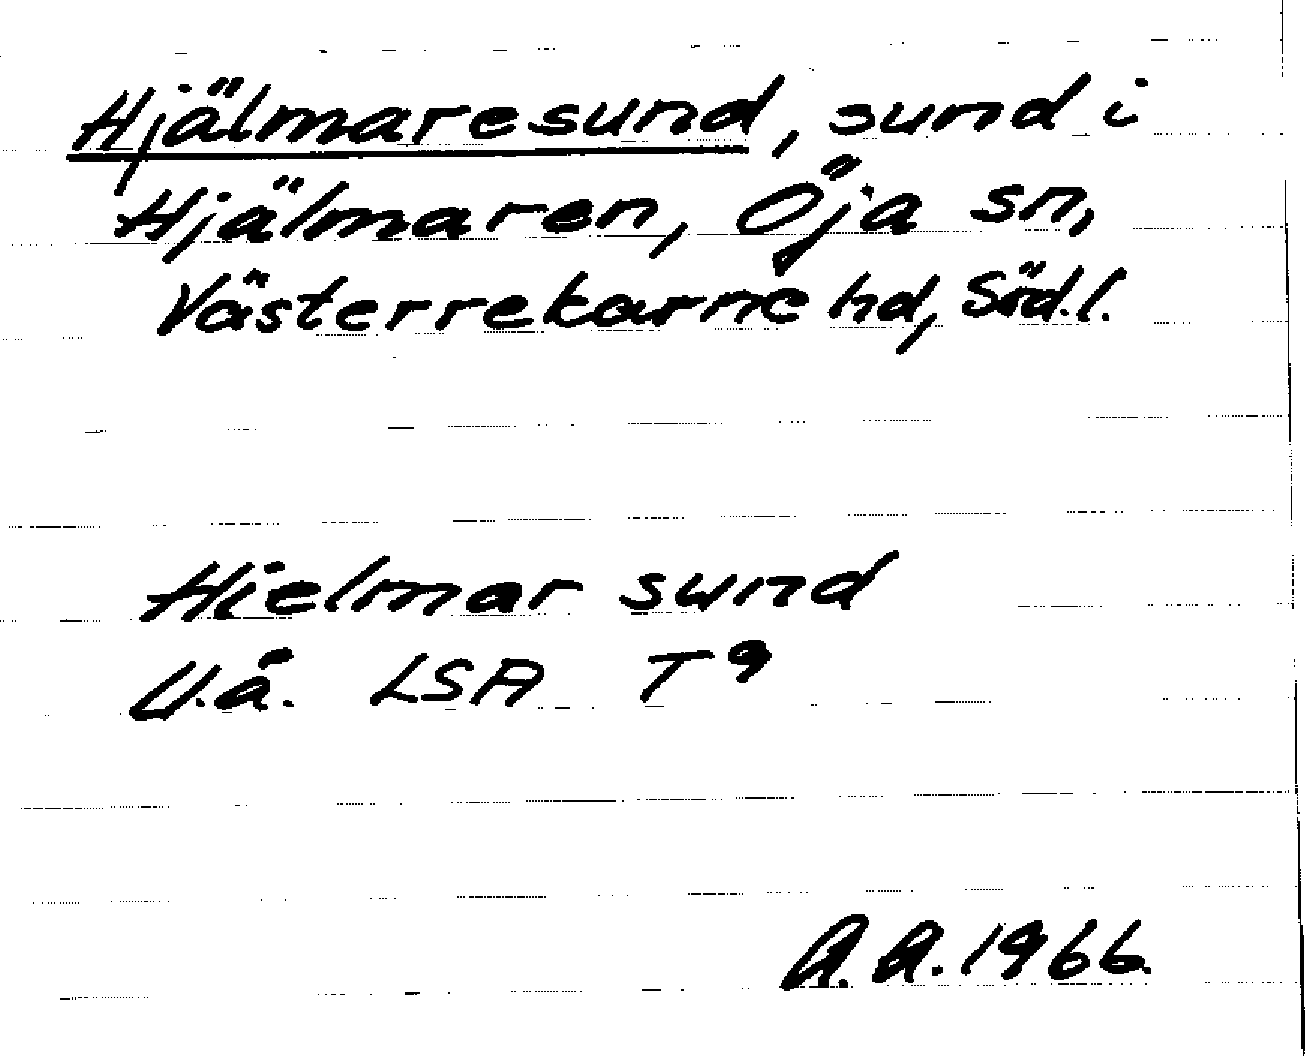 Hjälmaresund, sund i
Hjälmaren, Öja sn,
Västerrekarne hd, Söd.l.
Hielmar sund
U.å. LSA T⁹
A.A. 1966.